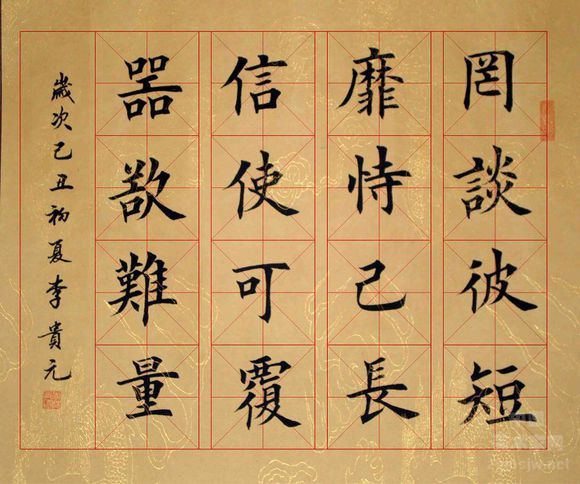 罔談彼短
靡恃己長
信使可覆
器欲難量
歲次己丑初夏李貴元